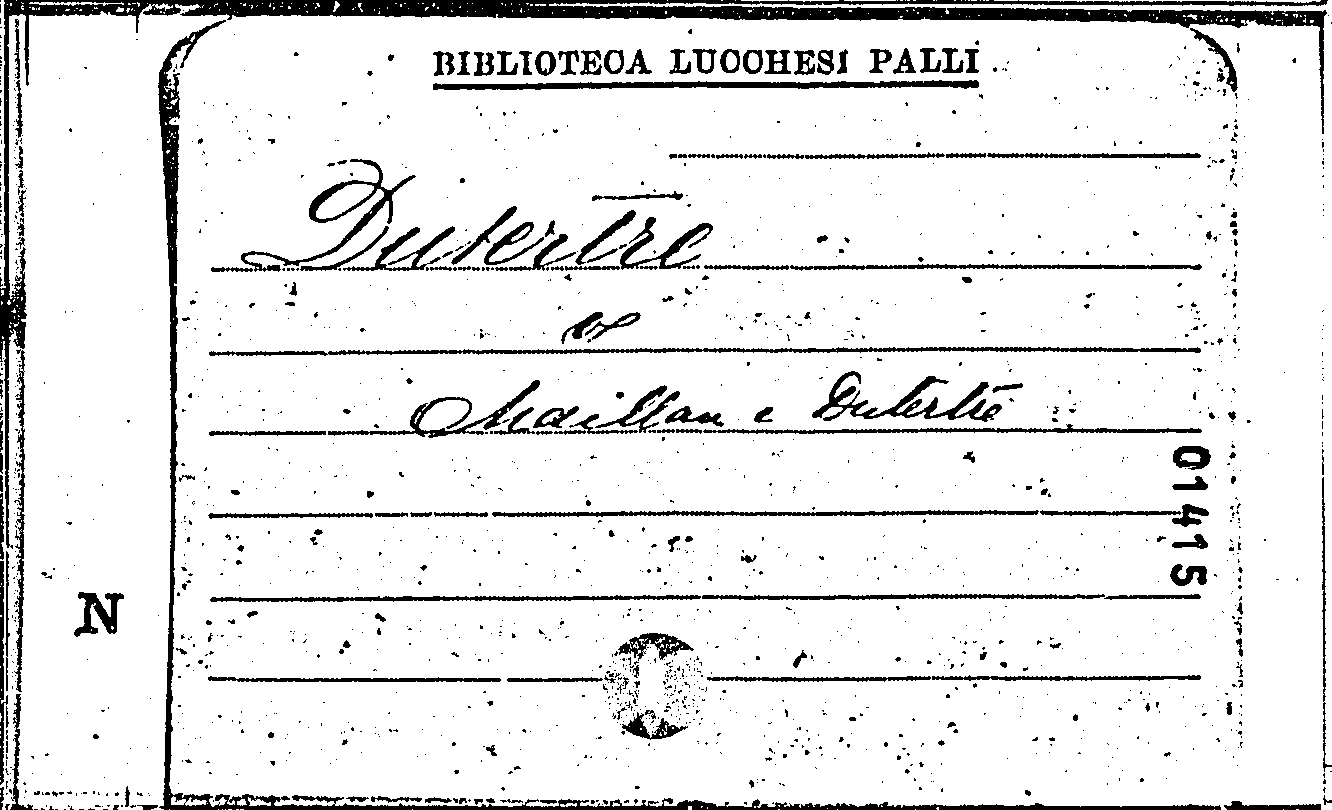 BIBLIOTECA LUCCHESI PALLI
Dutertre
v
Maillan e Dutertre
01415
N